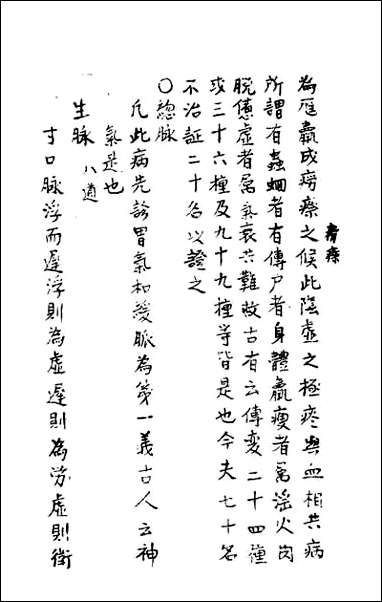 為尫羸成癆瘵之候此陰虛之極痰與血相共病
癆瘵
所謂有蟲蛔者有傳尸者身體羸瘦者屬淫火岗
脱僡虛者屬氣衰共難故古有云傳変二十四種
或三十六種及九十九種等皆是也今夫七十名
不治証二十名以證之
〇總脉
凡此病先診胃氣和緩脈為第一義古人云神
氣是也
生脉 八道
寸口脉浮而遲浮則為虛遲則為勞虛則衛